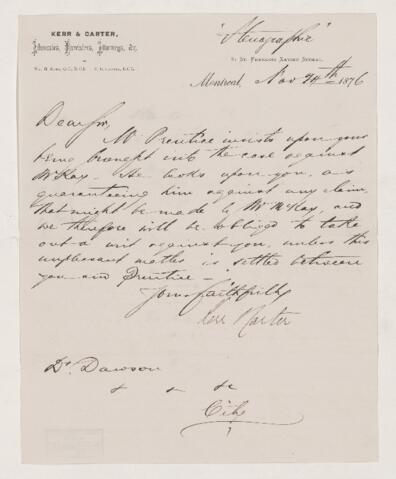 KERR & CARTER,
Advocates, Barristers, Attorneys, &c.
"Stenographic"
St. François Xavier Street,
Montreal, Nov 24th 1876
Dear Sir,
Mr Prentice insists upon your
being brought into the case against
McKay. He looks upon you, as
guaranteeing him against any claim
that might be made by Mr McKay, and
we therefore will be obliged to take
out a writ against you, unless this
unpleasant matter is settled between
you and Prentice –
Yours faithfully
Kerr & Carter
Dr. Dawson
&c
City